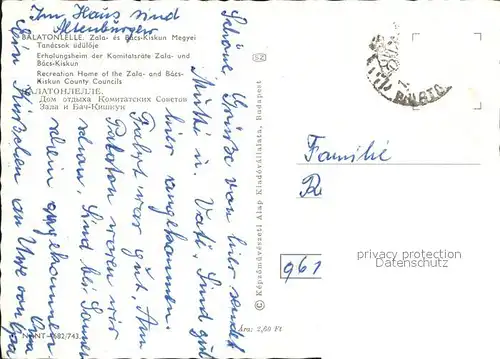 Im Haus sind
Altenburger
BALATONLELLE. Zala- és Bács-Kiskun Megyei
Tanácsok üdülője
Erholungsheim der Komitatsräte Zala- und
Bács-Kiskun
Recreation Home of the Zala- and Bács-
Kiskun County Councils
БАЛАТОНЛЕЛЛЕ.
Дом отдыха Комитатских Советов
Зала и Бач-Кишкун
Schöne Grüße von hier sendet
Mutti u. Vati. Sind gut
hier angekommen.
Fahrt war gut. Am
Balaton waren wir
schon. Sind bei Sonnen
schein angekommen
Ein Küßchen an Uwe von
Oma
© Képzőművészeti Alap Kiadóvállalata, Budapest
SZ
BALATO
Familie
R
961
privacy protection
watermarked
Ára: 2,60 Ft
682/743